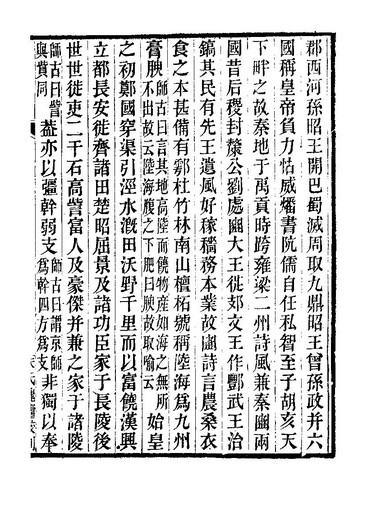 郡西河孫昭王開巴蜀滅周取九鼎昭王曾孫政并六
國稱皇帝負力怙威燔書阬儒自任私智至子胡亥天
下畔之故秦地于禹貢時跨雍梁二州詩風兼秦豳兩
國昔后稷封斄公劉處豳大王徙𨙸文王作酆武王治
鎬其民有先王遺風好稼穡務本業故豳詩言農桑衣
食之本甚備有鄠杜竹林南山檀柘號稱陸海爲九州
膏腴師古曰言其地高陸而饒物產如海之無所不出故云陸海腹之下肥曰腴故取喻云始皇
之初鄭國穿渠引涇水溉田沃野千里而以富饒漢興
立都長安徙齊諸田楚昭屈景及諸功臣家于長陵後
世世徙吏二千石高訾富人及豪傑并兼之家于諸陵
師古曰訾與貲同葢亦以彊幹弱支師古曰謂京師爲幹四方爲支非獨以奉